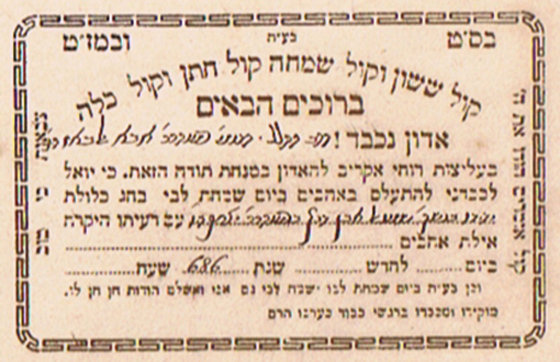 בס״ט בע״ה ובמז״ט
קול ששון וקול שמחה קול חתן וקול כלה
ברוכים הבאים
אדון נכבד!
בעליצות רוחי אקריב להאדון במנחת תודה הזאת. כי יואל
לכבדני להתעלס באהבים ביום שמחת לבי בחג כלולת
עם רעיתו היקרה
אילת אהבים
ביום לחדש שנת 686 שעה
וכן בע״ה ביום שמחת לבו ישמח לבי גם אני ואשלם תודות חן חן לו.
מוקירו ומכבדו ברגשי כבוד כערכו הרם
קול אומרים הודו את ה׳
צבאות כי טוב